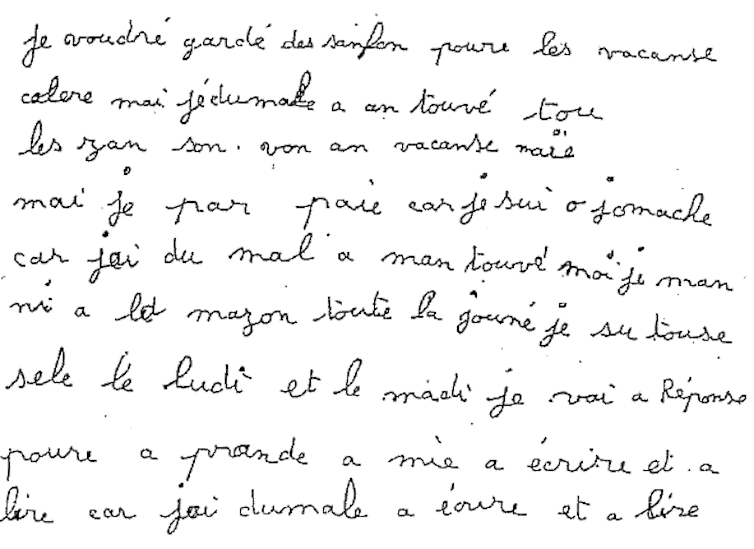 je voudré gardé des sanfan poure les vacanse
colere mai jédumale a an touvé tou
les zan son. von an vacanse maiè
mai je par paie car je sui o jomache
car jai du mal a man touvé moi je man
ni a la mazon toute la jouné je su touse
sele le ludi et le madi je vai a Réponse
poure a prande a mie a écrire et a
lire car jai dumale a écrire et a lire